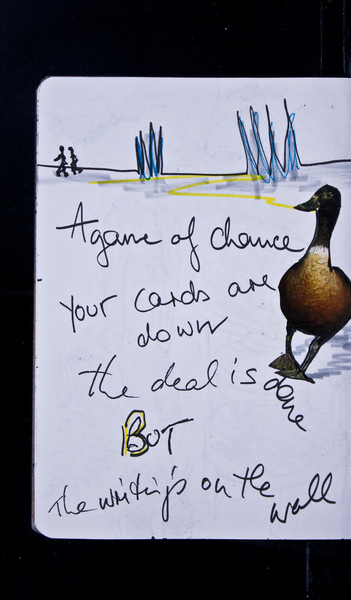 A game of chance
your cards are
down
the deal is done
BUT
the writing's on the wall